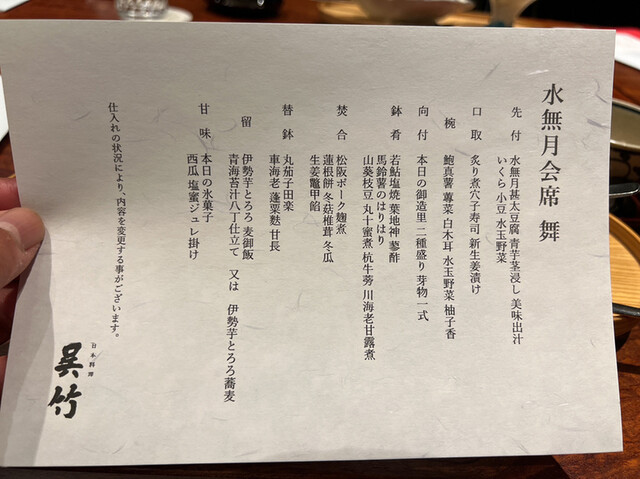 水無月会席 舞
先付 水無月甚太豆腐 青芋茎浸し 美味出汁
いくら 小豆 水玉野菜
口取 炙り煮穴子寿司 新生姜漬け
椀 鮑真薯 蓴菜 白木耳 水玉野菜 柚子香
向付 本日の御造里 二種盛り 芽物一式
鉢肴 若鮎塩焼 葉地神 蓼酢
馬鈴薯のはりはり
山葵枝豆 丸十蜜煮 杭牛蒡 川海老甘露煮
焚合 松阪ポーク麹煮
蓮根餅 冬菇椎茸 冬瓜
生姜鼈甲餡
替鉢 丸茄子田楽
車海老 蓬粟麩 甘長
留 伊勢芋とろろ 麦御飯
青海苔汁八丁仕立て 又は 伊勢芋とろろ蕎麦
甘味 本日の氷菓子
西瓜 塩蜜ジュレ掛け
仕入れの状況により、内容を変更する事がございます。
日本料理
呉竹